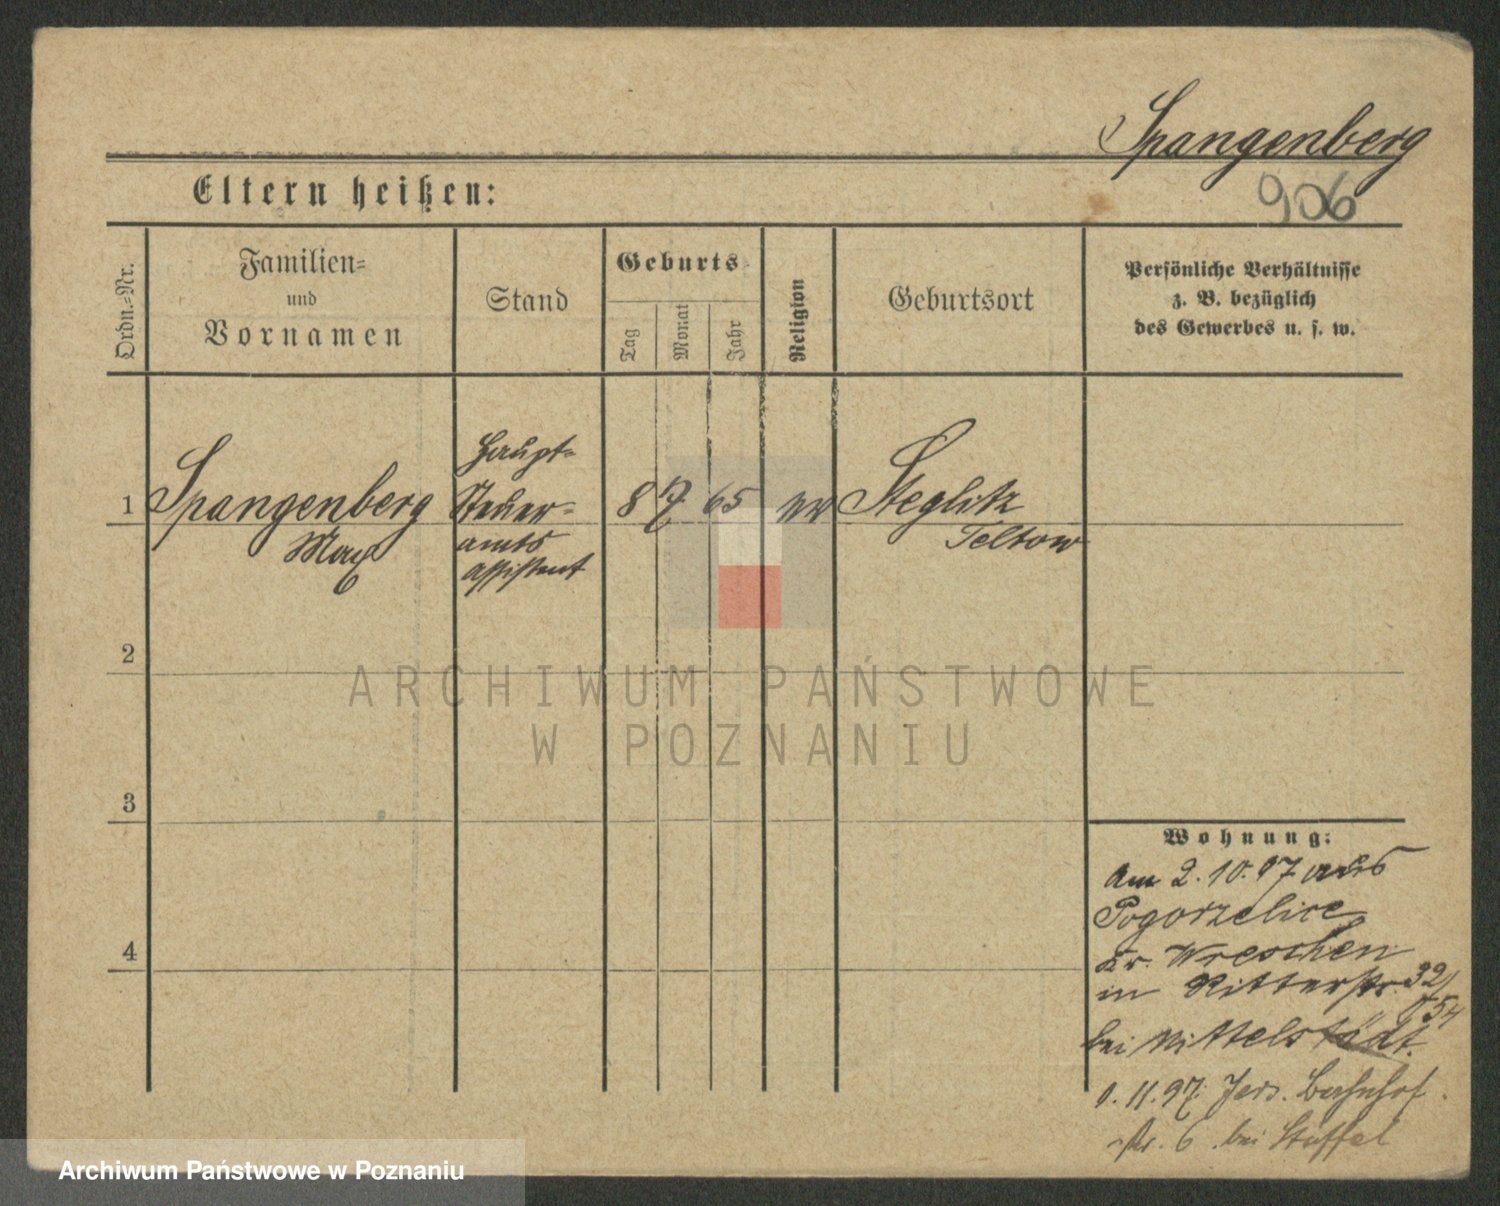 Spangenberg
906
Eltern heißen:
Ordn.-Nr.
Familien-
und
Vornamen
Stand
Geburts-
Tag
Monat
Jahr
Religion
Geburtsort
Persönliche Verhältnisse
z. B. bezüglich
des Gewerbes u. s. w.
1
Spangenberg
Max
Haupt-
Steuer-
amts
assistent
8
7
65
ev
Steglitz
Teltow
2
3
4
Wohnung:
Am 2.10.97 aus
Pogorzelice
Kr. Wreschen
in Ritterstr. 32/
54
bei Mittelstädt.
11.97 Jers. Bahnhof
str. 6 bei Stoffel
ARCHIWUM PAŃSTWOWE
W POZNANIU
Archiwum Państwowe w Poznaniu